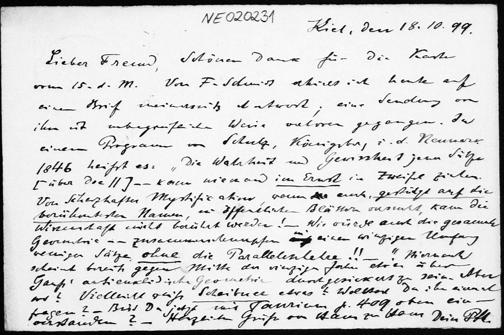 NE020231
Kiel, den 18.10.99.
Lieber Freund, Schönen Dank für die Karte
vom 15. d. M. Von F. Schmidt ich heute auf
einen Brief meinerseits Antwort; eine Sendung von
ihm ist unbegreiflicher Weise verloren gegangen. In
einem Programm von Schulz, Königsberg i. d. Neumark
1846 heißt es: „Die Wahrheit und Gewissheit jener Sätze
[über Def 11] — kann niemand im Ernst in Zweifel ziehen.
Von Scherzhafter Mystification, wenn auch gestützt auf die
berühmtesten Namen, in öffentlichen Blättern versucht, kann die
Wissenschaft nicht berührt werden! Wie würde auch die gesammte
Geometrie — zusammenschrumpfen in einen winzigen Umfang
weniger Sätze ohne die Parallelenlehre!! — " Hiernach
scheint bereits gegen Mitte der vierziger Jahre etwas über
Gauß' antieuklidische Geometrie durchgesickert zu sein. Aber
wo? Vielleicht weiß Scheibner etwas? Wolltest Du ihn einmal
fragen? — Bist Du mit Taurinus 409 oben ein-
verstanden? — Herzliche Grüße von Haus zu Haus Dein